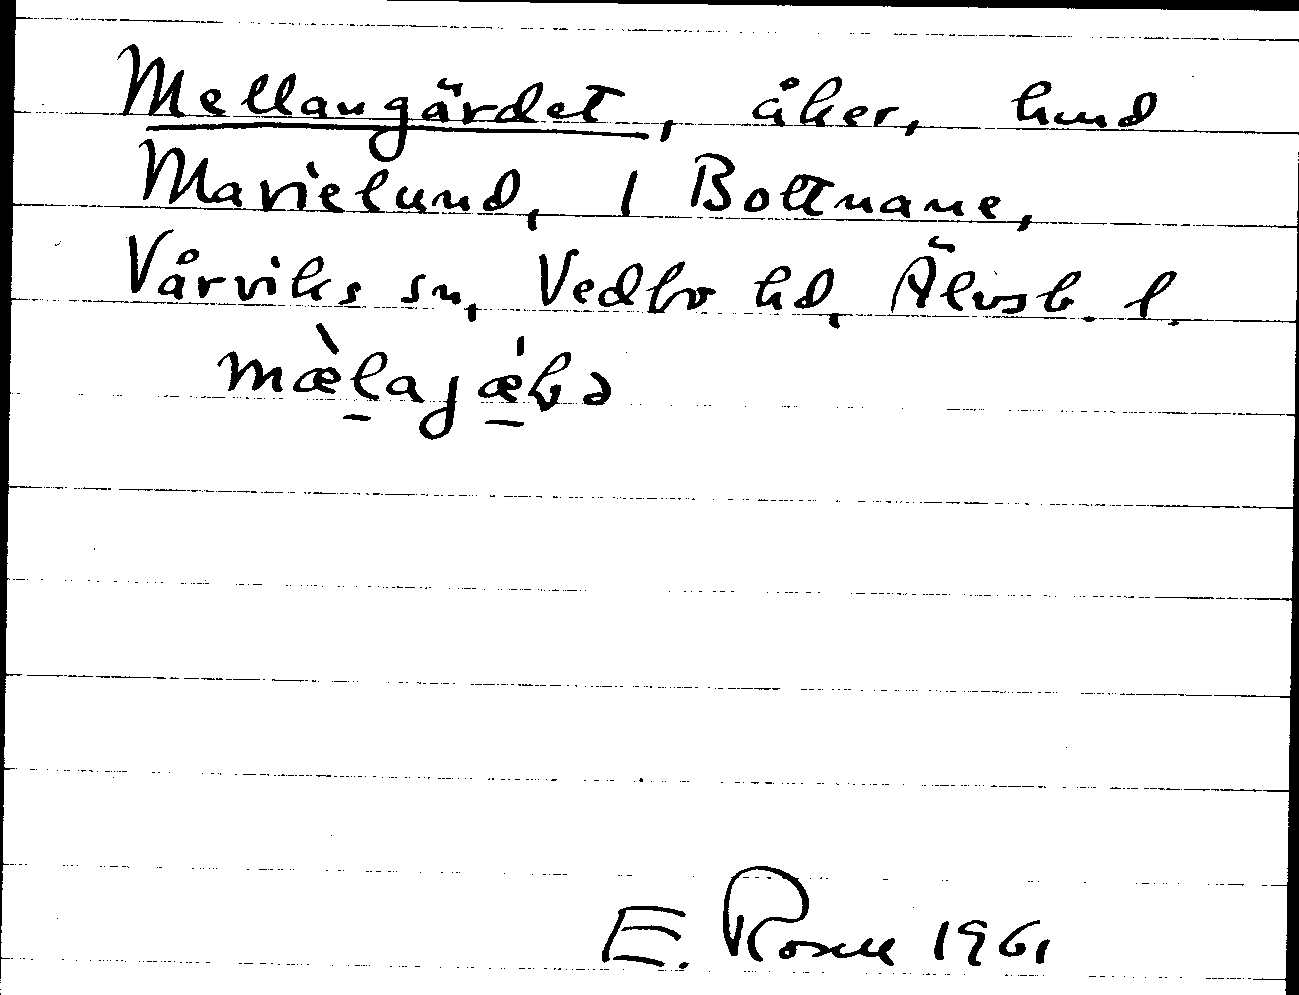 Mellangärdet, åker, hmd
Marielund, 1 Bottnane,
Vårviks sn, Vedbo hd, Älvsb. l.
E. Rosell 1961